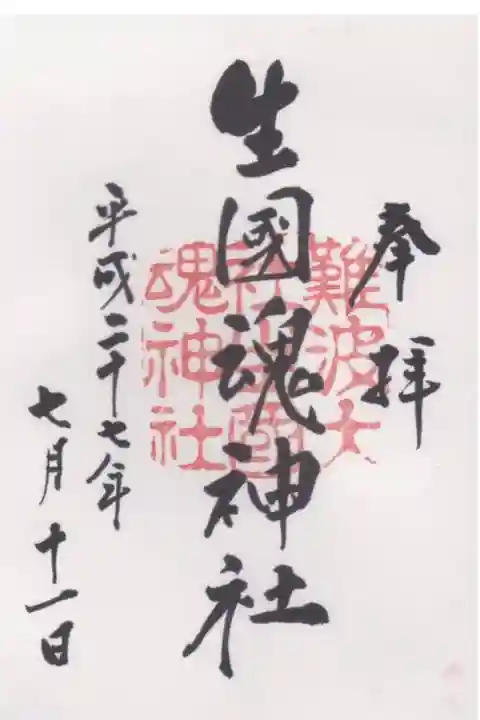 奉拝
難波大
社生國
魂神社
生國魂神社
平成二十七年
七月十一日